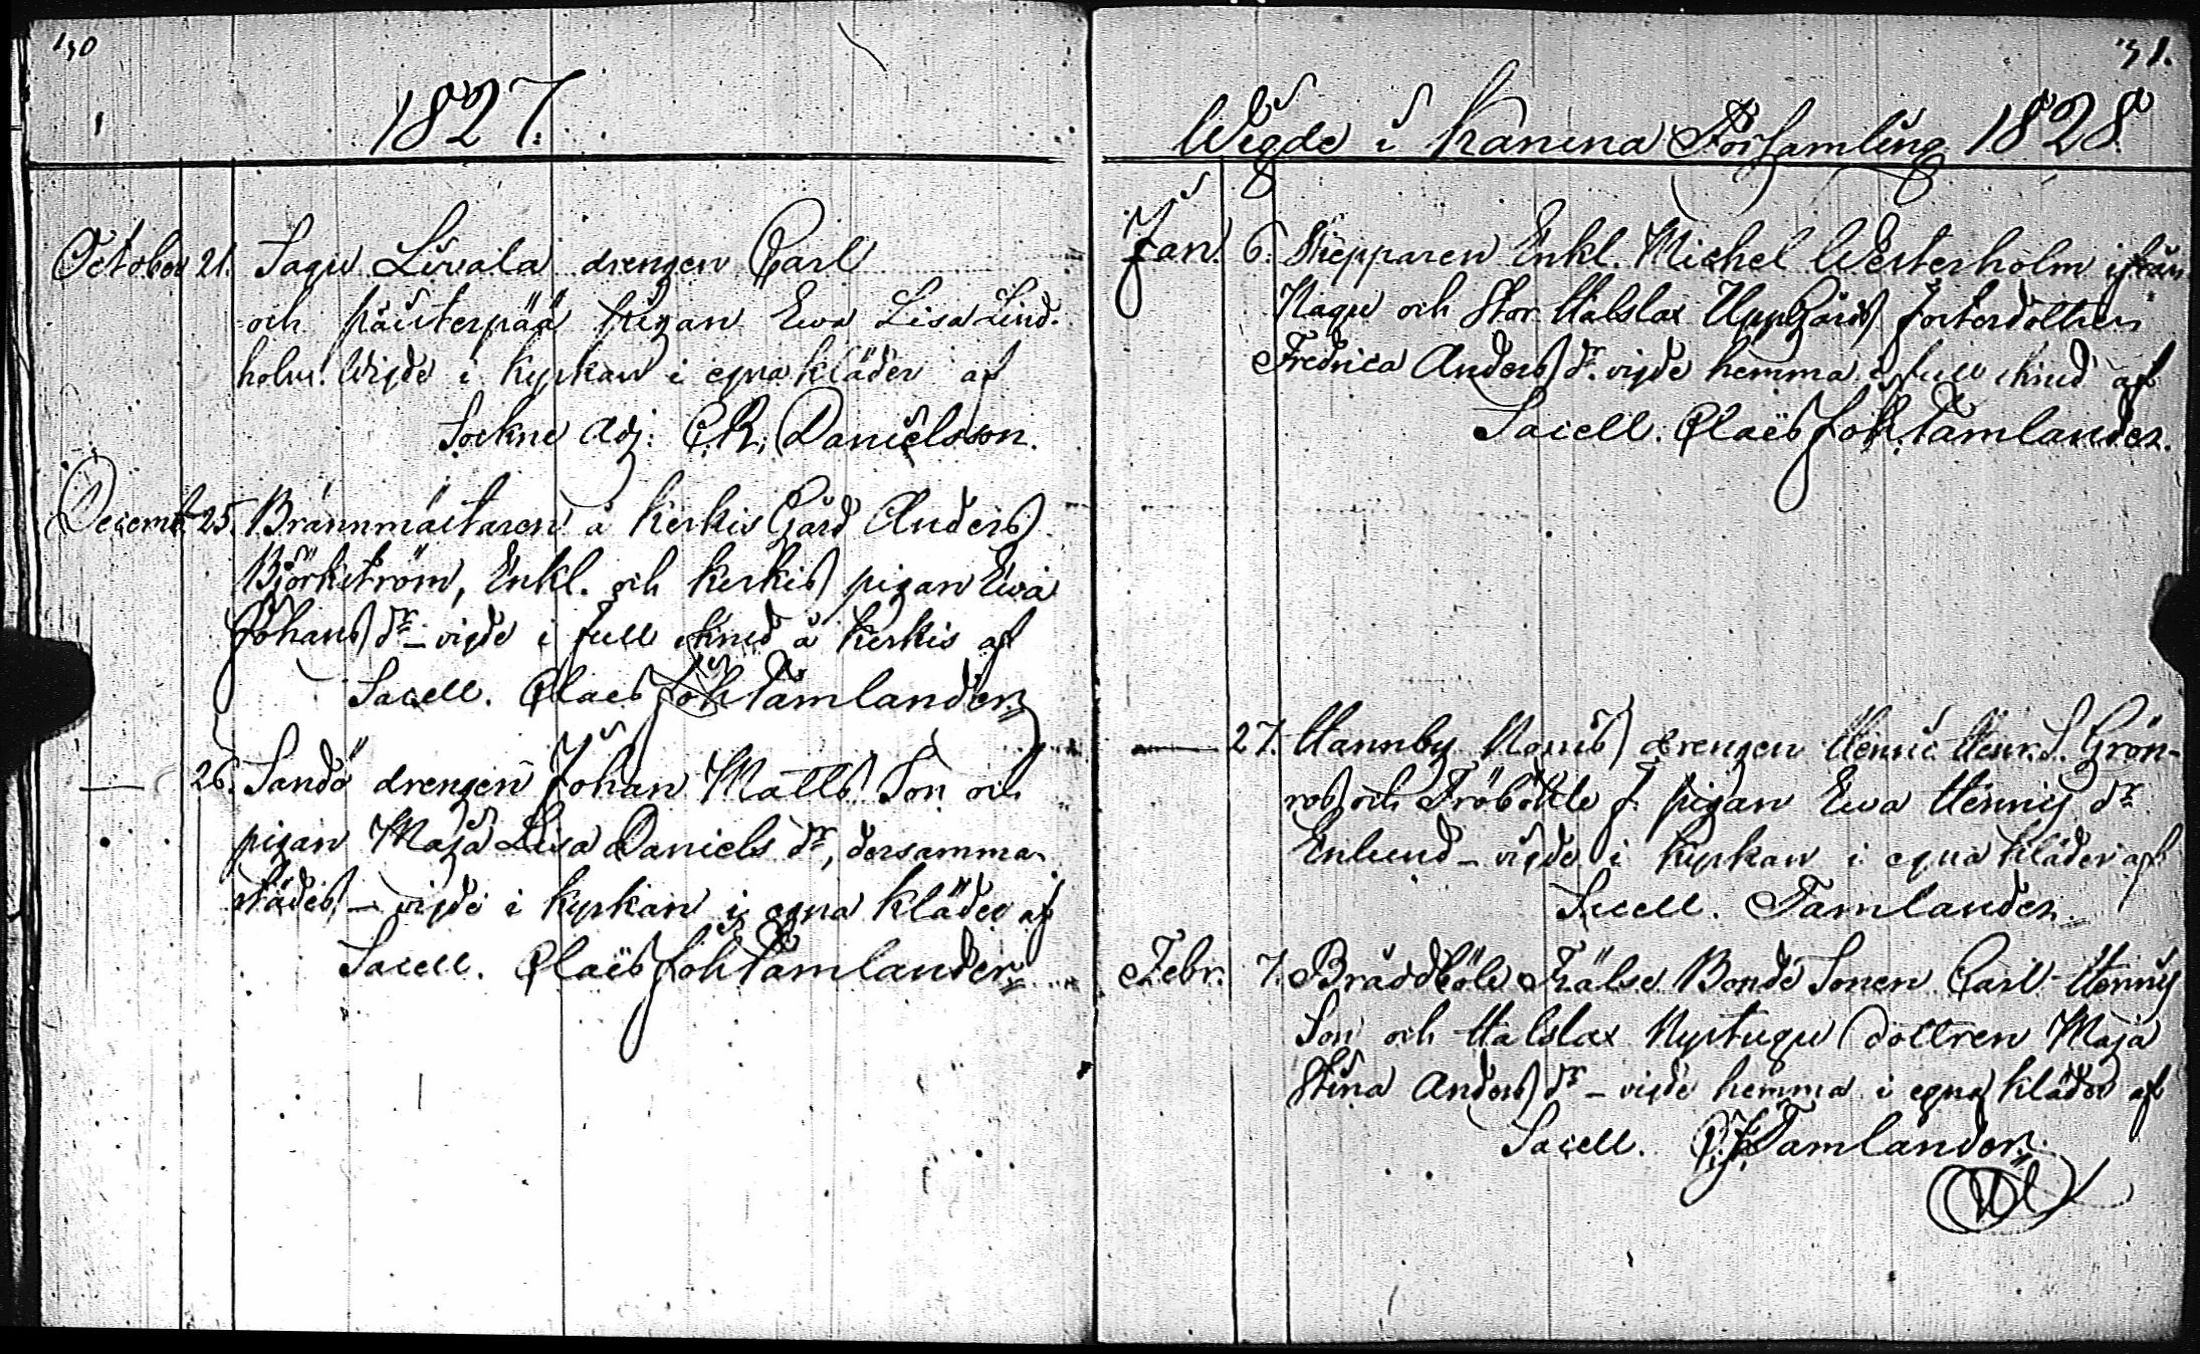 130
1827.
October 21. Sagu Livala drengen Carl
och päiterpää pigan Ewa Lisa Lind-
holm. Wigde i kyrkan i egna kläder af
Sockne Adj: C.R. Danielsson.
Decemb. 25. Brännmästaren å Kerkis Gård Anders
Björkström, Enkl. och Kerkis pigan Ewa
Johans dr – vigde i full skrud å Kerkis af
Sacell. Claes Joh Tamlander
— 26. Sandö drengen Johan Matts Son och
pigan Maja Lisa Daniels dr, dersamma-
städes, – vigde i kyrkan i egna kläder af
Sacell. Claës Joh Tamlander
131.
Wigde i Karuna Församling 1828
Jan. 6. Skepparen Enkl. Michel Westerholm ifrån
Nagu och Stor Halslax UppGårds fosterdottren
Fredrica Anders dr. vigde hemma i full skrud af
Sacell. Claës Joh. Tamlander.
— 27. Hannby drengen Henric Henr. S. Grön-
roos och Fröböhle f. pigan Ewa Henrics dr
Enlund – vigde i kyrkan i egna kläder af
Sacell. Tamlander.
Febr. 7. Bräddböle Frälse Bonde Sonen Carl Henrics
Son och Halslax Nystugu dottren Maja
Stina Anders dr – vigde hemma i egna kläder af
Sacell. C.J. Tamlander.